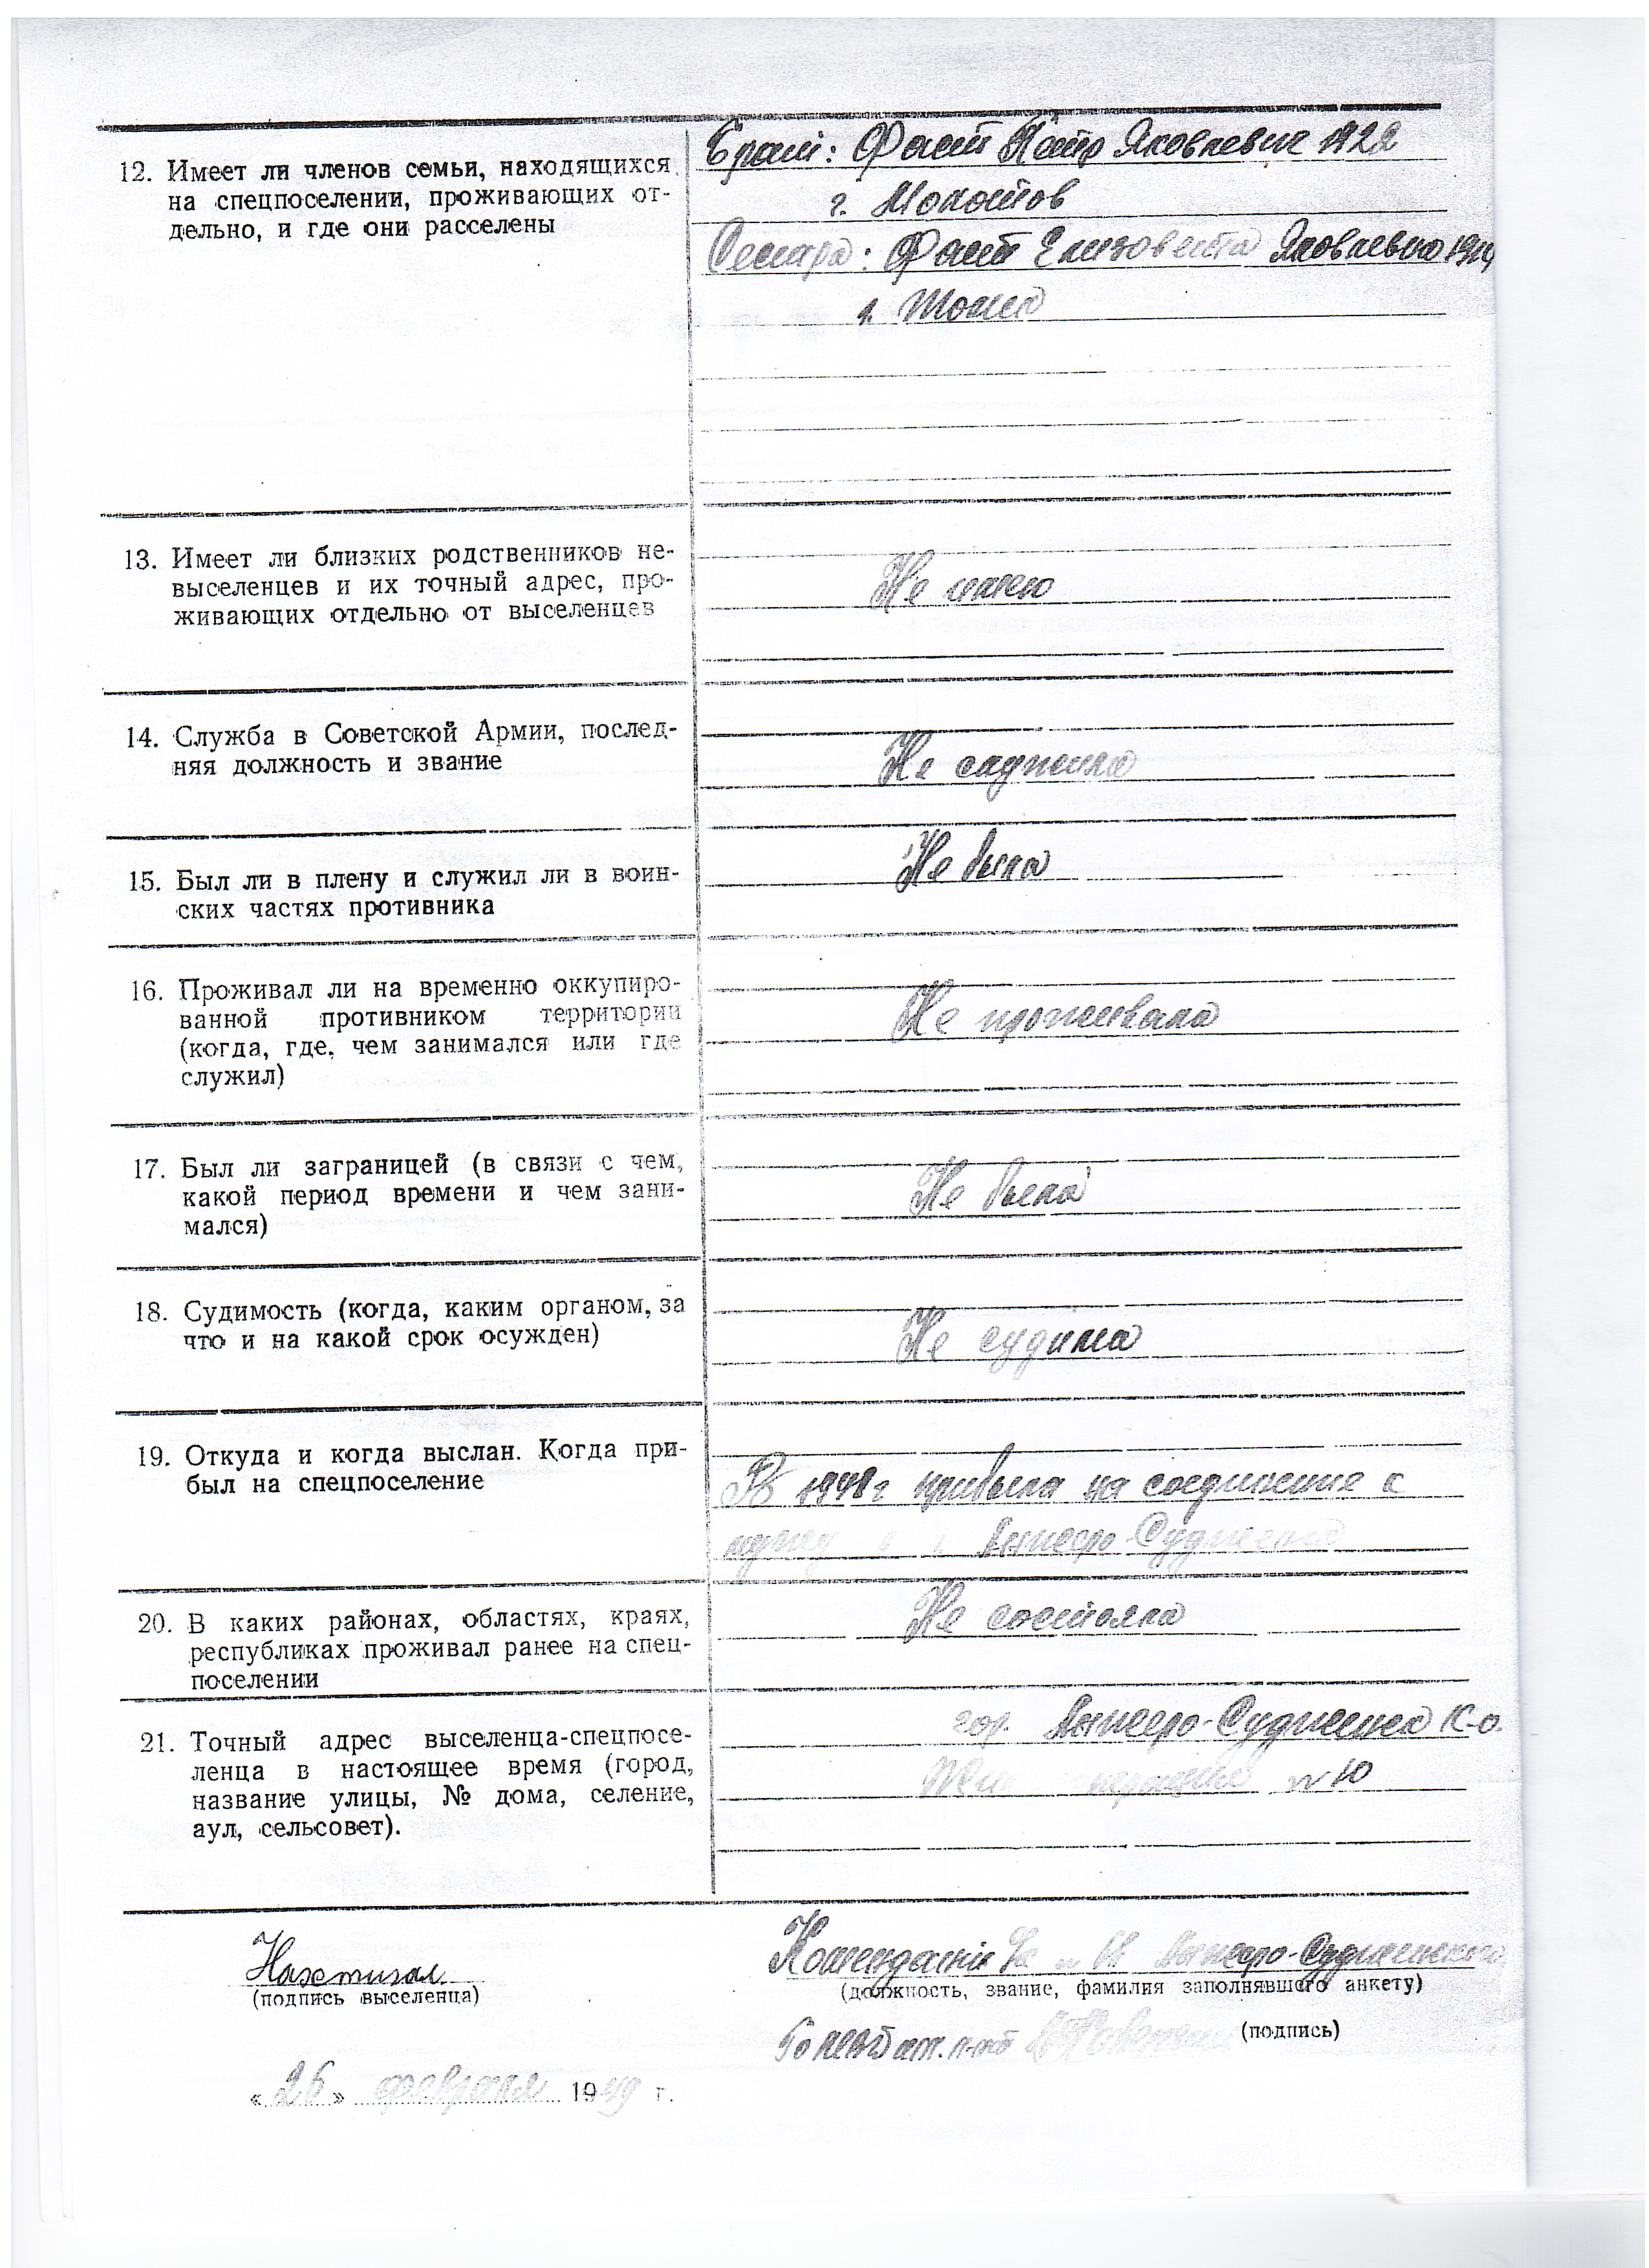 12. Имеет ли членов семьи, находящихся
на спецпоселении, проживающих от-
дельно, и где они расселены
Брат: Фаст Петр Яковлевич 1922
г. Молотов
Сестра: Фаст Елизовета Яковлевна
г. Томск
13. Имеет ли близких родственников не-
выселенцев и их точный адрес, про-
живающих отдельно от выселенцев
Не имею
14. Служба в Советской Армии, послед-
няя должность и звание
Не служила
15. Был ли в плену и служил ли в воин-
ских частях противника
Не была
16. Проживал ли на временно оккупиро-
ванной противником территории
(когда, где, чем занимался или где
служил)
Не проживала
17. Был ли заграницей (в связи с чем,
какой период времени и чем зани-
мался)
Не была
18. Судимость (когда, каким органом, за
что и на какой срок осужден)
Не судима
19. Откуда и когда выслан. Когда при-
был на спецпоселение
В 1948 г прибыла на соединение к
мужу в г. Анжеро-Судженск
20. В каких районах, областях, краях,
республиках проживал ранее на спец-
поселении
Не состояла
21. Точный адрес выселенца-спецпосе-
ленца в настоящее время (город,
название улицы, № дома, селение,
аул, сельсовет).
гор. Анжеро-Судженск К-о.
№ 10
Нахтигал
(подпись выселенца)
Комендант Анжеро-Судженского
(должность, звание, фамилия заполнявшего анкету)
ст. л-т
(подпись)
«26» февраля 1949 г.